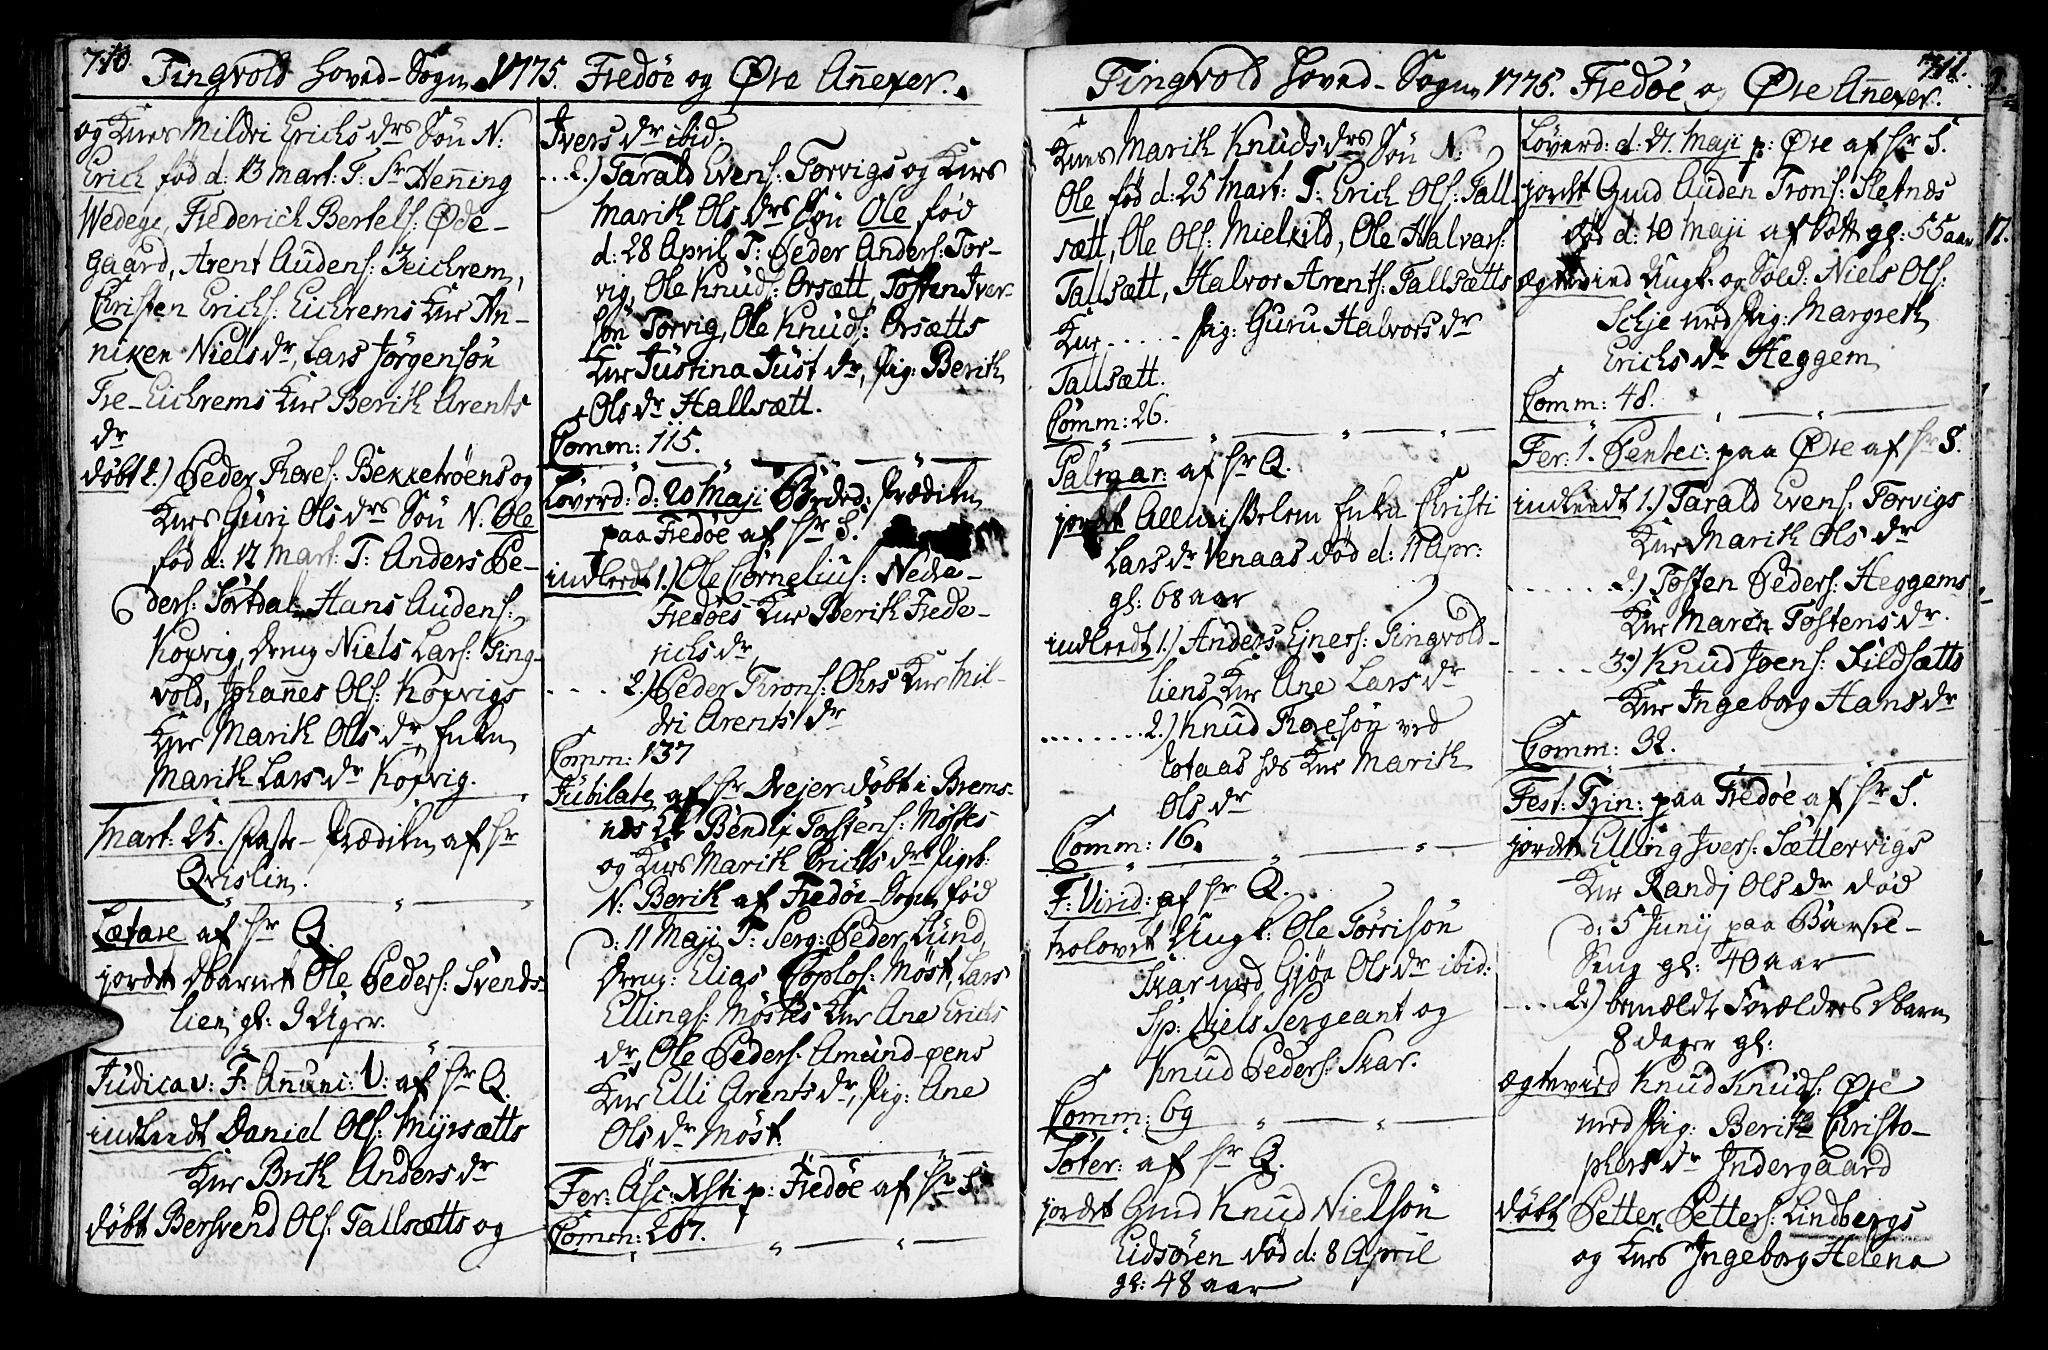 710. Tingvold Hoved-Sogn 1775. Fredøe og Øre Añexer.
og Kones Mildri Erichs drs Søn N:
Erich fød d: 13 Mart: T: Sr Heñing
Wedege, Frederich Bertels: Øde-
gaard, Arent Audens: Eichrem,
Christen Erichs: Eichrems Kone An-
niken Niels dr, Lars Jørgensøn
Tre-Eichrems Kone Berith Arents
dr
døbt 2.) Peder Tores: Bekketrøens og
Kones Guri Ols drs Søn N. Ole
fød d: 12 Mart: T: Anders Pe-
ders: Tørtdal, Hans Audens:
Kopvig, dreng Niels Lars: Ting-
vold, Johañes Ols: Kopvigs
Kone Marith Ols dr, Enken
Marith Lars dr Kopvig.
Mart: 25. Faste-Prædiken af Hr
Qvislin.
Lætare af Hr Q.
jordet Pbarnet Ole Peders: Svends-
lien gl: 3 Uger.
Judica v: F: Añunc: V: af Hr Q.
indleedt Daniel Ols: Myrsætts
Kone Brith Anders dr
døbt Bersvend Ols: Tallsætts og
Ivers dr ibid:
2.) Tarald Evens: Torvigs og Kones
Marith Ols drs Søn Ole fød
d: 28 April T: Peder Anders: Tor-
vig, Ole Knuds: Orsætt, Tosten Iver-
søn Torvig, Ole Knuds: Orsætts
Kone Justina Just dr, Pig: Berith
Ols dr Hallsætt.
Comm: 115.
Løverd: d: 20 Maji Prædiken
paa Fredøe af Hr S.
indleedt 1.) Ole Cornelius: Nedre-
Fredøes Kone Berith Frede-
richs dr
2.) Peder Trons: Ohrs Kone Mil-
dri Arents dr
Comm: 137
Jubilate af Hr Drejer døbt i Brems-
nes Bendix Tostens: Møstes
og Kones Marith Erichs drs Pigeb:
N: Berith af Fredøe-Sogn fød
d: 11 Maji T: Serg: Peder Lund,
dreng: Elias Møst, Lars
Ellings: Møstes Kone Ane Erichs
dr, Ole Peders: Amund-øens
Kone Elli Arents dr, Pig: Ane
Ols dr Møst.
Fer: Asc: Xsti p: Fredøe af Hr S.
Comm: 207.
Tingvold Hoved-Sogn 1775. Fredøe og Øre Añexer. 711.
Kones Marith Knuds drs Søn N:
Ole fød d: 25 Mart: T: Erich Ols: Tall-
sætt, Ole Ols: Mielkild, Ole Halvars:
Tallsætt, Halvor Arents: Tallsætts
Kone..... Pig: Guru Halvors dr
Tallsætt.
Comm: 26.
Palmar: af Hr Q.
jordet Allmisselem Enken Christi
Lars dr Venaas død d: 11 Apr:
gl: 68 aar
indleedt 1.) Anders Ejners: Tingvold-
liens Kone Ane Lars dr
2.) Knud Toresøn ved
Kone Marith
Ols dr
Comm: 16.
F: Virid: af Hr Q.
trolovet Ungk: Ole Torrisøn
Skar med Gjøa Ols dr ibid:
Sp: Niels Sergeant og
Knud Peders: Skar.
Comm: 69
Soter: af Hr Q.
jordet Gmd Knud Nielsøn
Eidsøren død d: 8 April
gl: 48 aar
Løverd: d: 27. Maji p: Øre af Hr S.
jordet Gmd Auden Trons: Sletnes
død d: 10 Maji af Sott gl: 55 aar
ægtevied Ungk. og Sold: Niels Ols:
Schje med Pig: Margreth
Erichs dr Heggem
Comm: 48.
Fer: 1. Pentec: paa Øre af Hr S.
indleedt 1.) Tarald Evens: Torvigs
Kone Marith Ols dr
2.) Tosten Peders: Heggems
Kone Maren Tostens dr.
3.) Knud Joens: Sildsætts
Kone Ingeborg Hans dr
Comm: 32.
Fest: Trin: paa Fredøe af Hr S.
jordet Elling Ivers: Sættervigs
Kone Randj Ols dr død
d: 5 Junij paa Barsel-
Seng gl: 40 aar
2.) bemældt Forældres Pbarn
8 dager gl:
ægtevied Knud Knuds: Øre
med Pig: Berith Christo-
phers dr Indergaard
døbt Petter Petters: Lindbergs
og Kones Ingeborg Helena